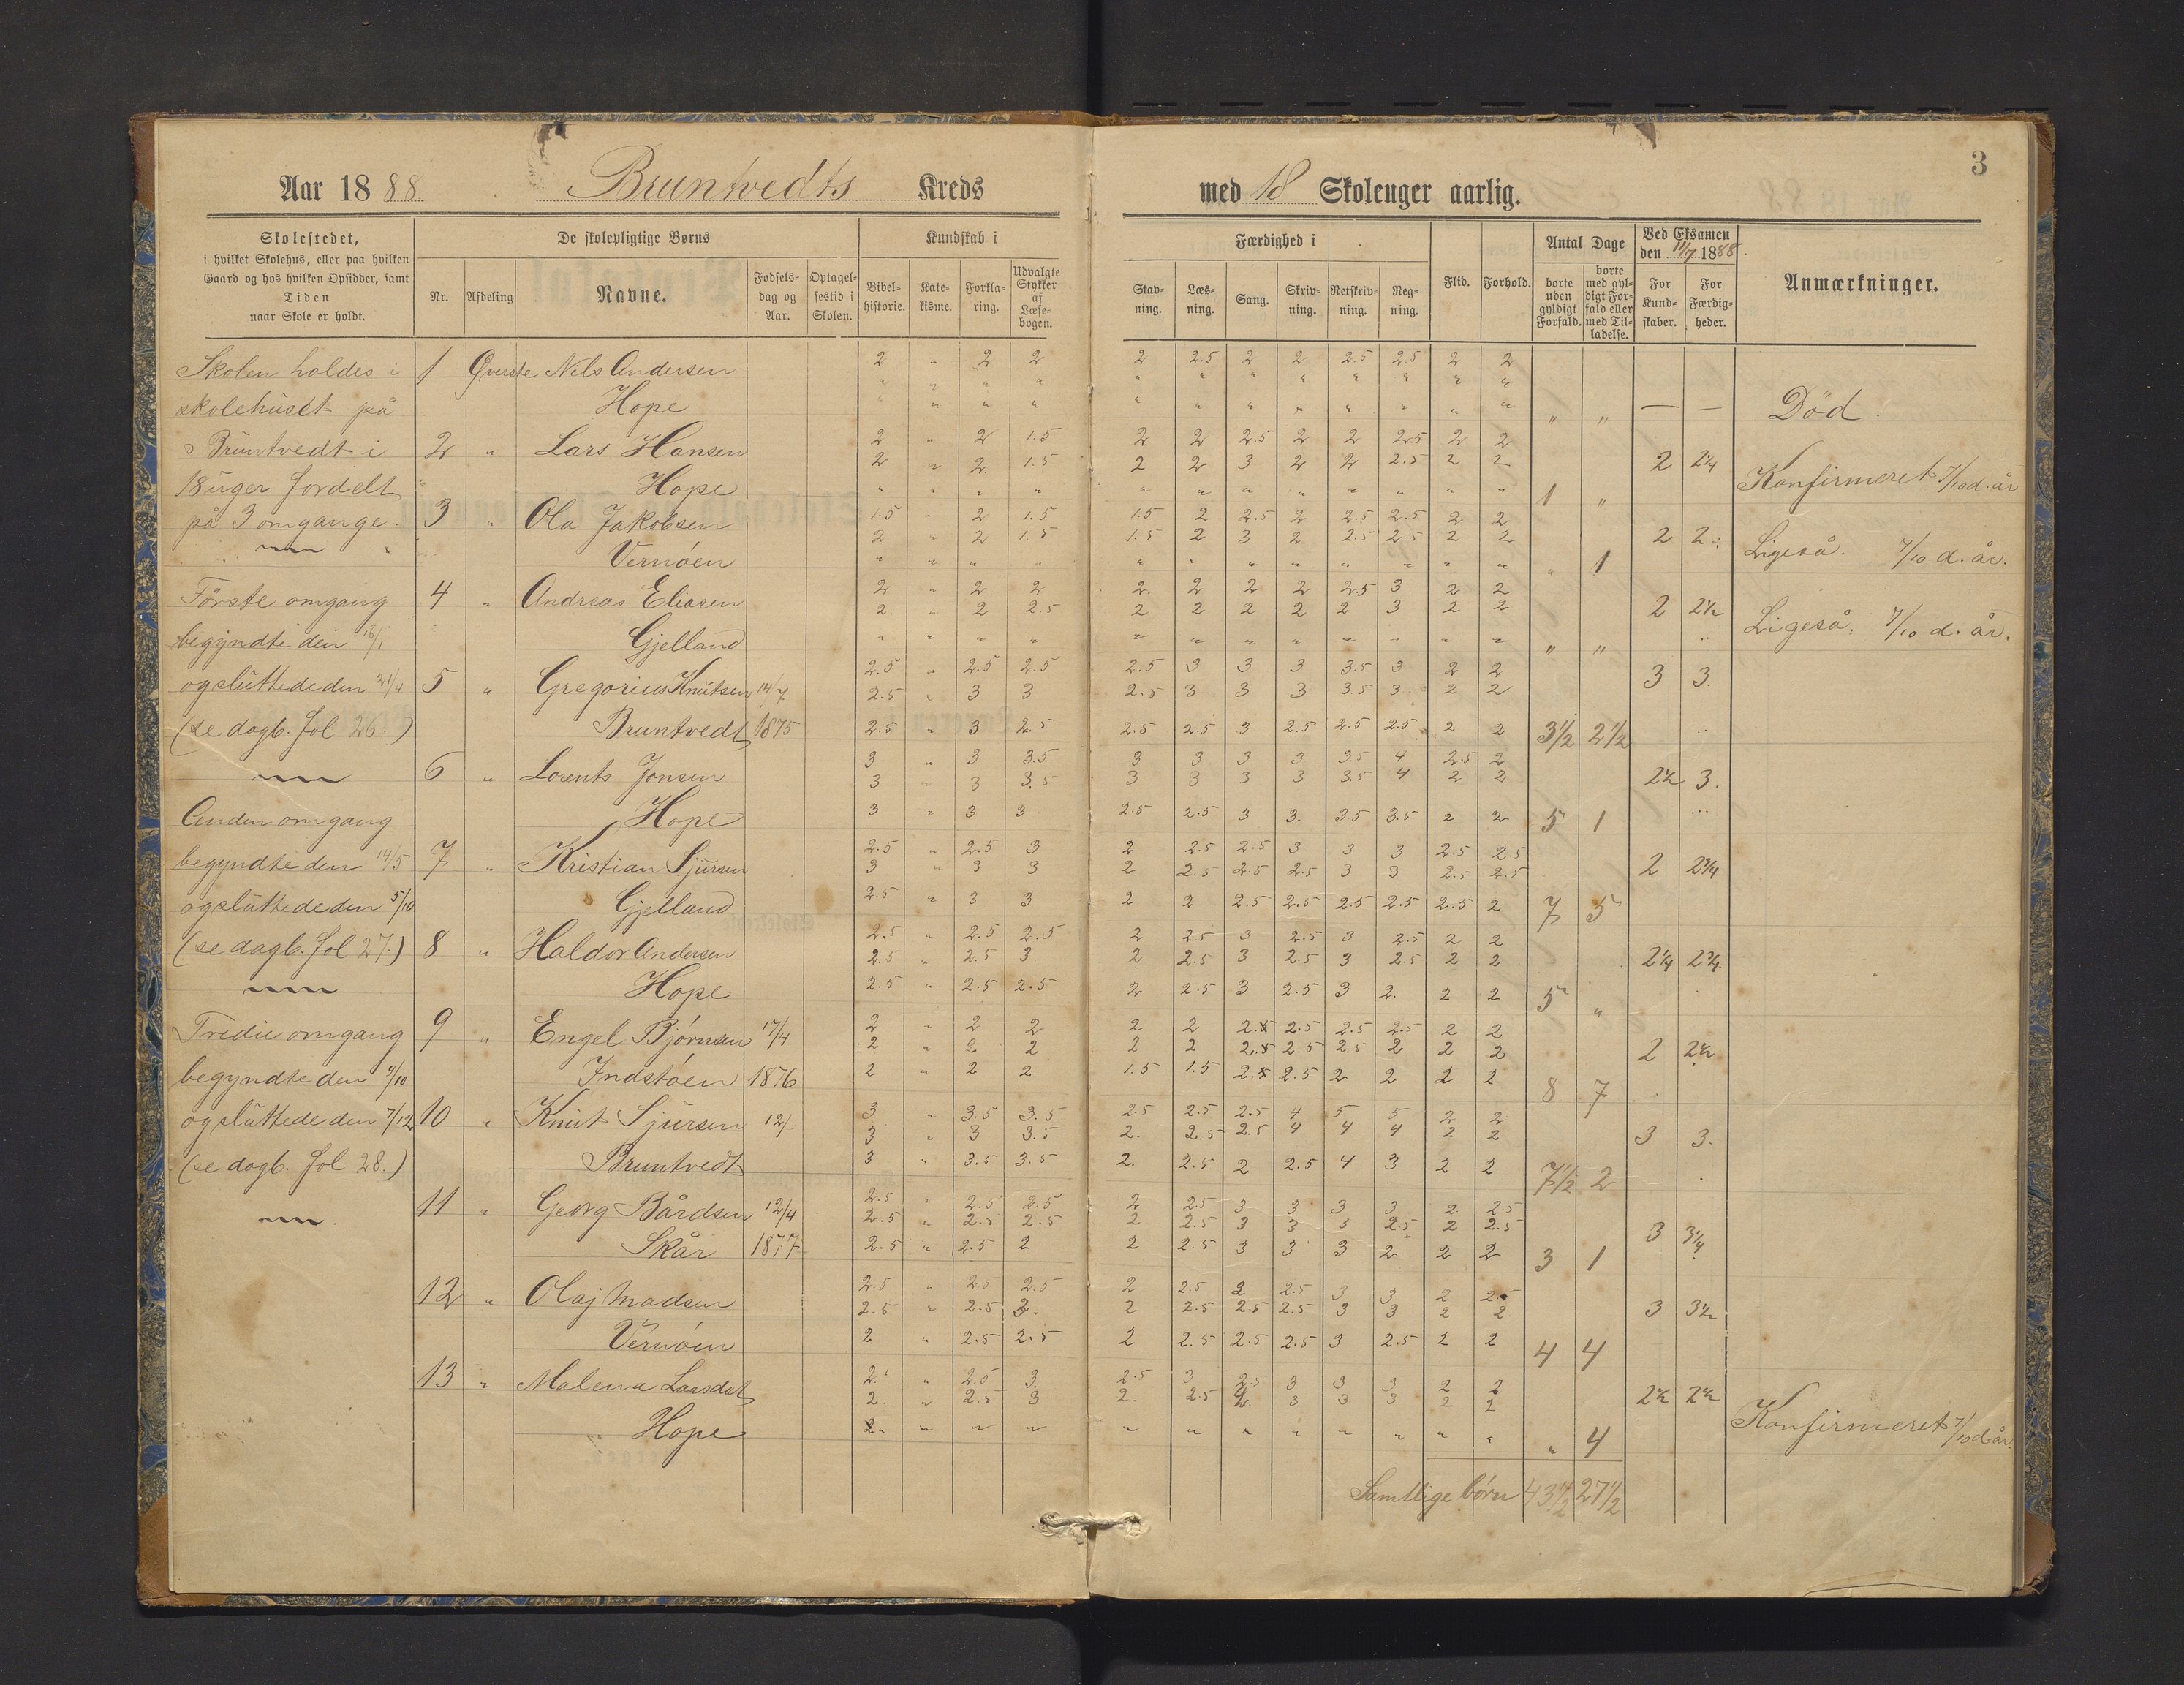 3
Aar 1888. Bruntvedts Kreds med 18 Skoleuger aarlig.
Skolestedet,
i hvilket Skolehus, eller paa hvilken
Gaard og hos hvilken Opsidder, samt
Tiden
naar Skole er holdt.
De skolepligtige Børns
Nr. Afdeling Navne. Fødselsdag og Aar. Optagelsestid i Skolen.
Kundskab i
Bibelhistorie. Katekisme. Forklaring. Udvalgte Stykker af Læsebogen.
Færdighed i
Stavning. Læsning. Sang. Skrivning. Retskrivning. Regning.
Flid. Forhold.
Antal Dage
borte uden gyldigt Forfald. borte med gyldigt Forfald eller med Tilladelse.
Ved Eksamen
den 11/7 1888.
For Kundskaber. For Færdigheder.
Anmærkninger.
Skolen holdes i
skolehuset på
Bruntvedt i
18 uger fordelt
på 3 omgange.
Første omgang
begyndte den 16/1
og sluttede den 21/4
(se dagb. fol 26.)
Anden omgang
begyndte den 14/5
og sluttede den 5/10
(se dagb. fol 27.)
Tredie omgang
begyndte den 9/10
og sluttede den 7/12
(se dagb. fol 28.)
1 Øverste Nils Andersen 2 " 2 2 2 2.5 2 2 2.5 2.5 2 2
" " " " " " " " " " " "
Hope " " " " " " " " " " " " " " — — Død.
2 " Lars Hansen 2 " 2 1.5 2 2 2.5 2 2 2.5 2 2
2 " 2 1.5 2 2 3 2 2 2.5 2 2 2 2 1/4 Konfirmeret 7/10 d. år
Hope " " " " " " " " " " " " 1 "
3 " Ola Jakobsen 1.5 " 2 1.5 1.5 2 2.5 2 2.5 2.5 2 2
2 " 2 1.5 1.5 2 3 2 2.5 2.5 2 2 2 2 Ligeså. 7/10 d. år.
Vernøen " " " " " " " " " " " " " 1
4 " Andreas Eliasen 2 " 2 2 2. 2 2 2 2.5 3 2 2
2. " 2 2.5 2 2 2 2 2 3 2 2 2 2 1/2 Ligeså. 7/10 d. år.
Gjelland " " " " " " " " " " " " " "
5 " Gregorius Knutsen 14/7 2.5 " 2.5 2.5 2.5 3 3 3 3.5 3 2 2
2.5 " 3 3 2.5 3 3 3 3.5 3 2 2 3 3.
Bruntvedt 1875 2.5 " 3 2.5 2.5 2.5 3 2.5 2.5 2.5 2 2 3 1/2 2 1/2
6 " Lorents Jonsen 3 " 3 3.5 3 3 3 3 3.5 4 2.5 2
3 " 3 3.5 3 3 3 3 3.5 4 2 2 2 1/2 3.
Hope 3 " 3 3 2.5 2.5 3 3. 3.5 3.5 2 2 5 1
7 " Kristian Sjursen 2.5 " 2.5 3 2 2.5 2.5 3 3 3 2.5 2.5
3 " 3 3 2 2.5 2.5 2.5 3 3 2.5 2.5 2 2 3/4
Gjelland 2.5 " 3 3 2 2 2.5 2.5 2.5 2.5 2.5 2 7 5
8 " Haldor Andersen 2.5 " 2.5 2.5 2 2.5 3 2.5 3 2.5 2 2
2.5 " 2.5 3. 2 2.5 3 2.5 3 2.5 2 2 2 1/4 2 3/4.
Hope 2.5 " 2.5 2.5 2 2.5 3 2.5 3 2. 2 2 5 "
9 " Engel Bjørnsen 17/4 2 " 2 2 2 2 2.5 2.5 2.5 2.5 2 2
2 " 2 2 2 2 2.5 2.5 2.5 2 2 2 2 2 1/2
Indstøen 1876 2 " 2 2 1.5 1.5 2.5 2.5 2 2 2 2 8 7
10 " Knut Sjursen 12/ 3 " 3.5 3.5 2.5 2.5 2.5 4 5 5 2 2
3 " 3 3.5 2. 2.5 2.5 4 4 4 2 2 3 3.
Bruntvedt 3 " 3.5 3.5 2. 2.5 2 2.5 4 3 2 2 7 1/2 2
11 " Georg Bårdsen 12/4 2.5 " 2.5 2.5 2 2.5 3 3 3 3 2 2.5
2.5 " 2.5 2.5 2 2.5 3 3 3 2.5 2 2.5 3 3 1/4
Skår 1877 2.5 " 2.5 2 2 2.5 3 3 3 2 2 2 3 1
12 " Olaj Madsen 2.5 " 2.5 2.5 2 2.5 2 2.5 3 3 2 2.5
2.5 " 2.5 3. 2 2.5 2.5 2.5 3 3 2 2. 3 3 1/2
Vernøen 2 " 2.5 2.5 2 2.5 2.5 2.5 3 2.5 2 2 4 4
13 " Malena Larsdat 2. " 2.5 3. 2.5 3 2.5 3 3 3 2 2
2. " 2.5 3 2. 2.5 2 3 3 3 2 2 2 1/2 2 1/2 Konfirmeret 7/10 d. år.
Hope " " " " " " " " " " " " 4
Samtlige børn 43 1/2 27 1/2